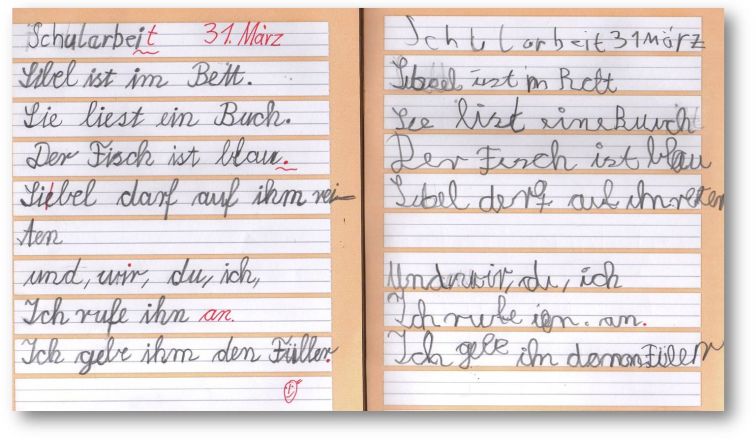 Schularbeit 31. März
Sibel ist im Bett.
Sie liest ein Buch.
Der Fisch ist blau.
Siebel darf auf ihm rei-
ten
und, wir, du, ich,
Ich rufe ihn an.
Ich gebe ihm den Füller.
Schularbeit 31 März
Sibel ist im Bett
Sie list eine Buuch
Der Fisch ist blau
Sibel derf auf ihn reten
Und wir, du, ich
Ich rufe ign. an.
Ich gebe ihn Füler